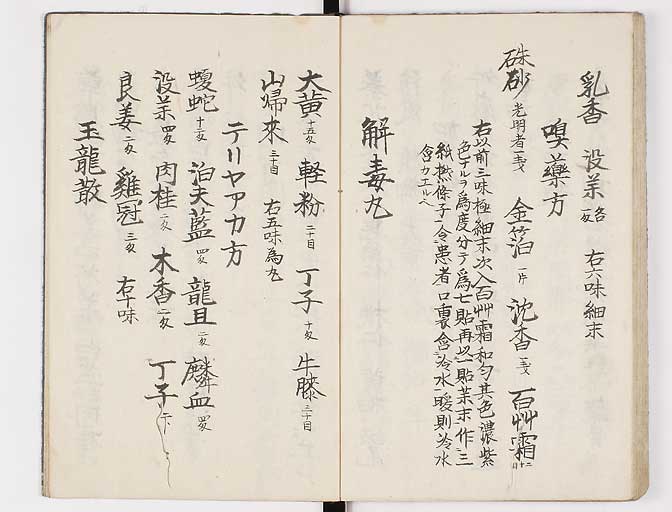 乳香 没薬 各一匁 右六味細末
嗅藥方
硃砂 光明者一戔 金箔 一片 沈香 一戔 百艸霜 二十目
右以前三味極細末次入百艸霜和匀其色濃紫
色ナルヲ為度分テ為七貼再以一貼薬末作三
紙撚條子令患者口裏含冷水暖則冷水
含カエルヘ
解毒丸
大黄 十五匁 軽粉 二十目 丁子 十匁 牛膝 三十目
山帰來 三十目 右五味為丸
テリヤアカ方
蝮蛇 十二匁 泊夫藍 四匁 龍且 二匁 麟血 四匁
没薬 四匁 肉桂 二匁 木香 二匁 丁子
良姜 二匁 雞冠 三匁 右十味
玉龍散